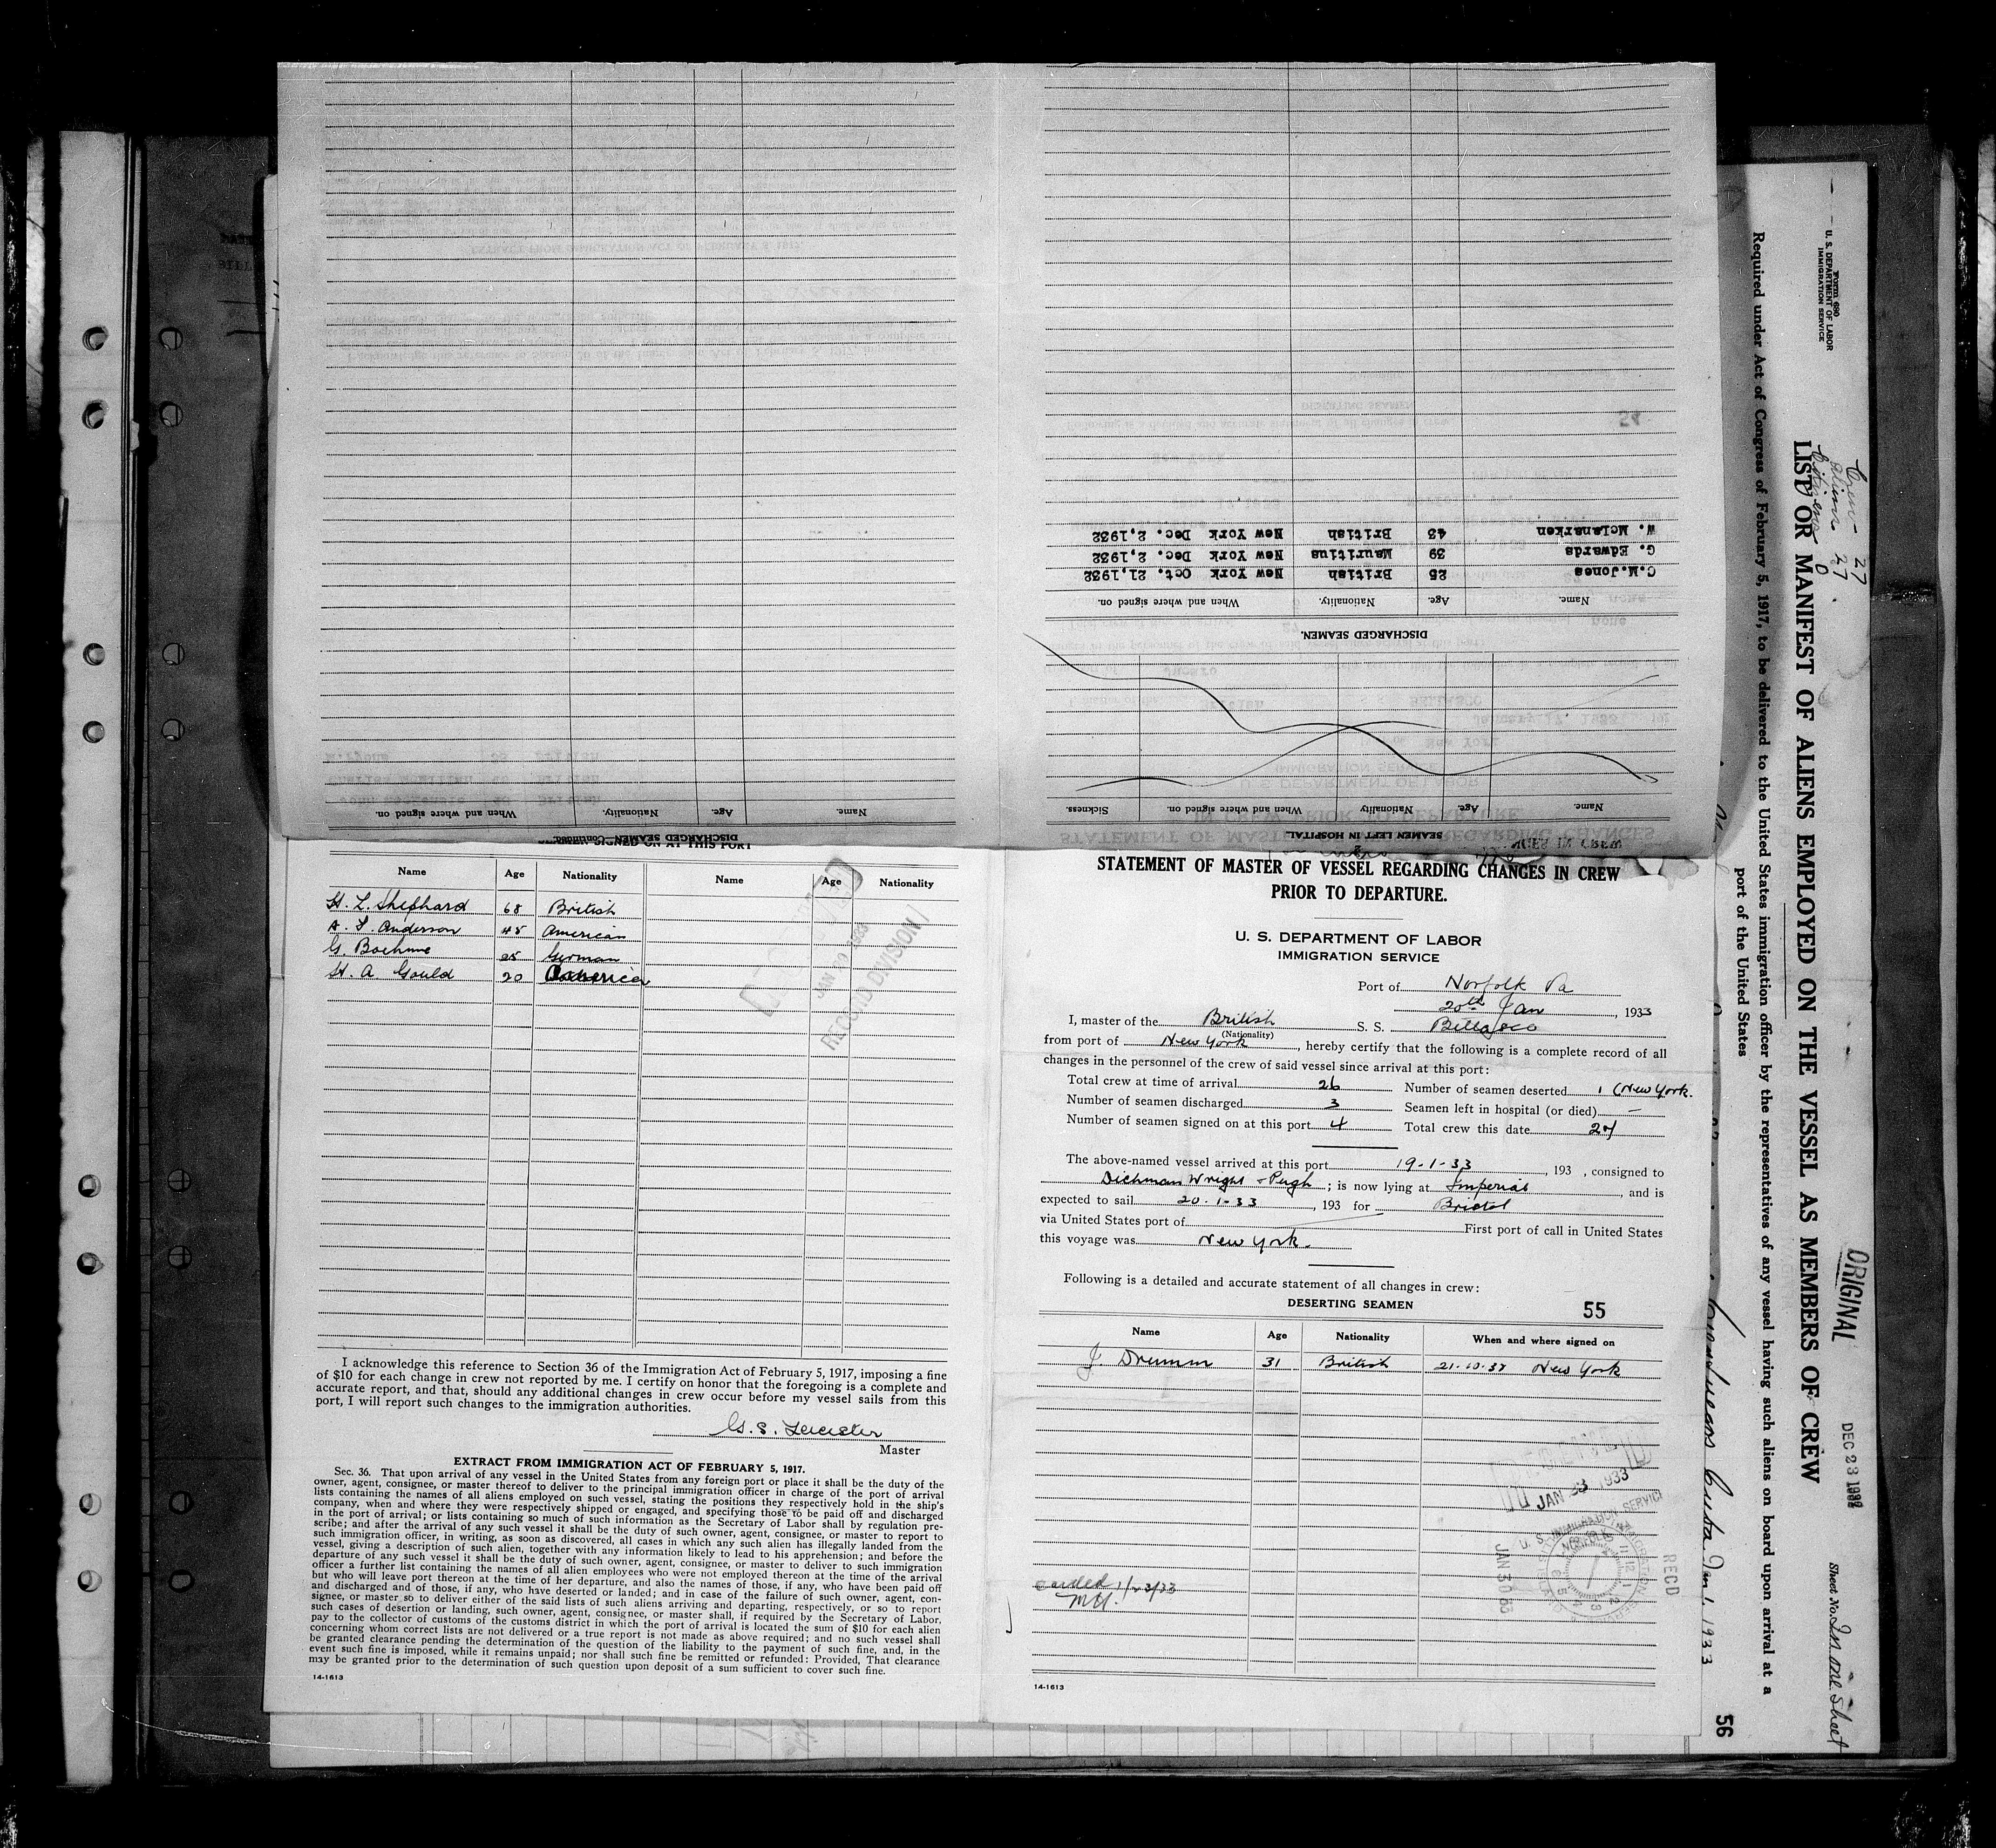 DISCHARGED SEAMEN.
Name. Age. Nationality. When and where signed on.
C.M.Jones 25 British New York Oct. 21,1932
G. Edwards 39 Mauritius New York Dec. 2,1932
W. McLanarken 43 British New York Dec. 2,1932
SEAMEN LEFT IN HOSPITAL
Name. Age. Nationality When and where signed on. Sickness.
DISCHARGED SEAMEN—Continued.
Name. Age. Nationality. When and where signed on.
SIGNED ON AT THIS PORT
Name Age Nationality Name Age Nationality
H. L. Shephard 68 British
A. S. Anderson 45 American
G. Boehme 25 German
H. A. Gould 20 America
RECORD DIVISION
I acknowledge this reference to Section 36 of the Immigration Act of February 5, 1917, imposing a fine
of $10 for each change in crew not reported by me. I certify on honor that the foregoing is a complete and
accurate report, and that, should any additional changes in crew occur before my vessel sails from this
port, I will report such changes to the immigration authorities.
G. S. Leicester
Master
EXTRACT FROM IMMIGRATION ACT OF FEBRUARY 5, 1917.
Sec. 36. That upon arrival of any vessel in the United States from any foreign port or place it shall be the duty of the
owner, agent, consignee, or master thereof to deliver to the principal immigration officer in charge of the port of arrival
lists containing the names of all aliens employed on such vessel, stating the positions they respectively hold in the ship's
company, when and where they were respectively shipped or engaged, and specifying those to be paid off and discharged
in the port of arrival; or lists containing so much of such information as the Secretary of Labor shall by regulation pre-
scribe; and after the arrival of any such vessel it shall be the duty of such owner, agent, consignee, or master to report to
such immigration officer, in writing, as soon as discovered, all cases in which any such alien has illegally landed from the
vessel, giving a description of such alien, together with any information likely to lead to his apprehension; and before the
departure of any such vessel it shall be the duty of such owner, agent, consignee, or master to deliver to such immigration
officer a further list containing the names of all alien employees who were not employed thereon at the time of the arrival
but who will leave port thereon at the time of her departure, and also the names of those, if any, who have been paid off
and discharged and of those, if any, who have deserted or landed; and in case of the failure of such owner, agent, con-
signee, or master so to deliver either of the said lists of such aliens arriving and departing, respectively, or so to report
such cases of desertion or landing, such owner, agent, consignee, or master shall, if required by the Secretary of Labor,
pay to the collector of customs of the customs district in which the port of arrival is located the sum of $10 for each alien
concerning whom correct lists are not delivered or a true report is not made as above required; and no such vessel shall
be granted clearance pending the determination of the question of the liability to the payment of such fine, and, in the
event such fine is imposed, while it remains unpaid; nor shall such fine be remitted or refunded: Provided, That clearance
may be granted prior to the determination of such question upon deposit of a sum sufficient to cover such fine.
14-1613
STATEMENT OF MASTER OF VESSEL REGARDING CHANGES IN CREW
PRIOR TO DEPARTURE.
U. S. DEPARTMENT OF LABOR
IMMIGRATION SERVICE
Port of Norfolk Va
20th Jan, 1933
I, master of the British S. S. Bellasco
(Nationality)
from port of New York, hereby certify that the following is a complete record of all
changes in the personnel of the crew of said vessel since arrival at this port:
Total crew at time of arrival 26 Number of seamen deserted 1 (New York.
Number of seamen discharged 3 Seamen left in hospital (or died) —
Number of seamen signed on at this port 4 Total crew this date 27
The above-named vessel arrived at this port 19-1-33, 193 , consigned to
Dichman Wright & Pugh; is now lying at Imperial, and is
expected to sail 20-1-33, 193 for Bristol
via United States port of First port of call in United States
this voyage was New York.
Following is a detailed and accurate statement of all changes in crew:
DESERTING SEAMEN 55
Name Age Nationality When and where signed on
J. Drumm 31 British 21-10-32 New York
JAN 23 1933
U. S. IMMIGRATION SERVICE
JAN 30 33
RECD
carded
14-1613
Form 680
U. S. DEPARTMENT OF LABOR
IMMIGRATION SERVICE
Crew - 27
Aliens 27
Citizens 0
LIST OR MANIFEST OF ALIENS EMPLOYED ON THE VESSEL AS MEMBERS OF CREW
Required under Act of Congress of February 5, 1917, to be delivered to the United States immigration officer by the representatives of any vessel having such aliens on board upon arrival at a
port of the United States
ORIGINAL
DEC 23 1932
Sheet No. In one Sheet
Cuba Jan 1. 1933
56